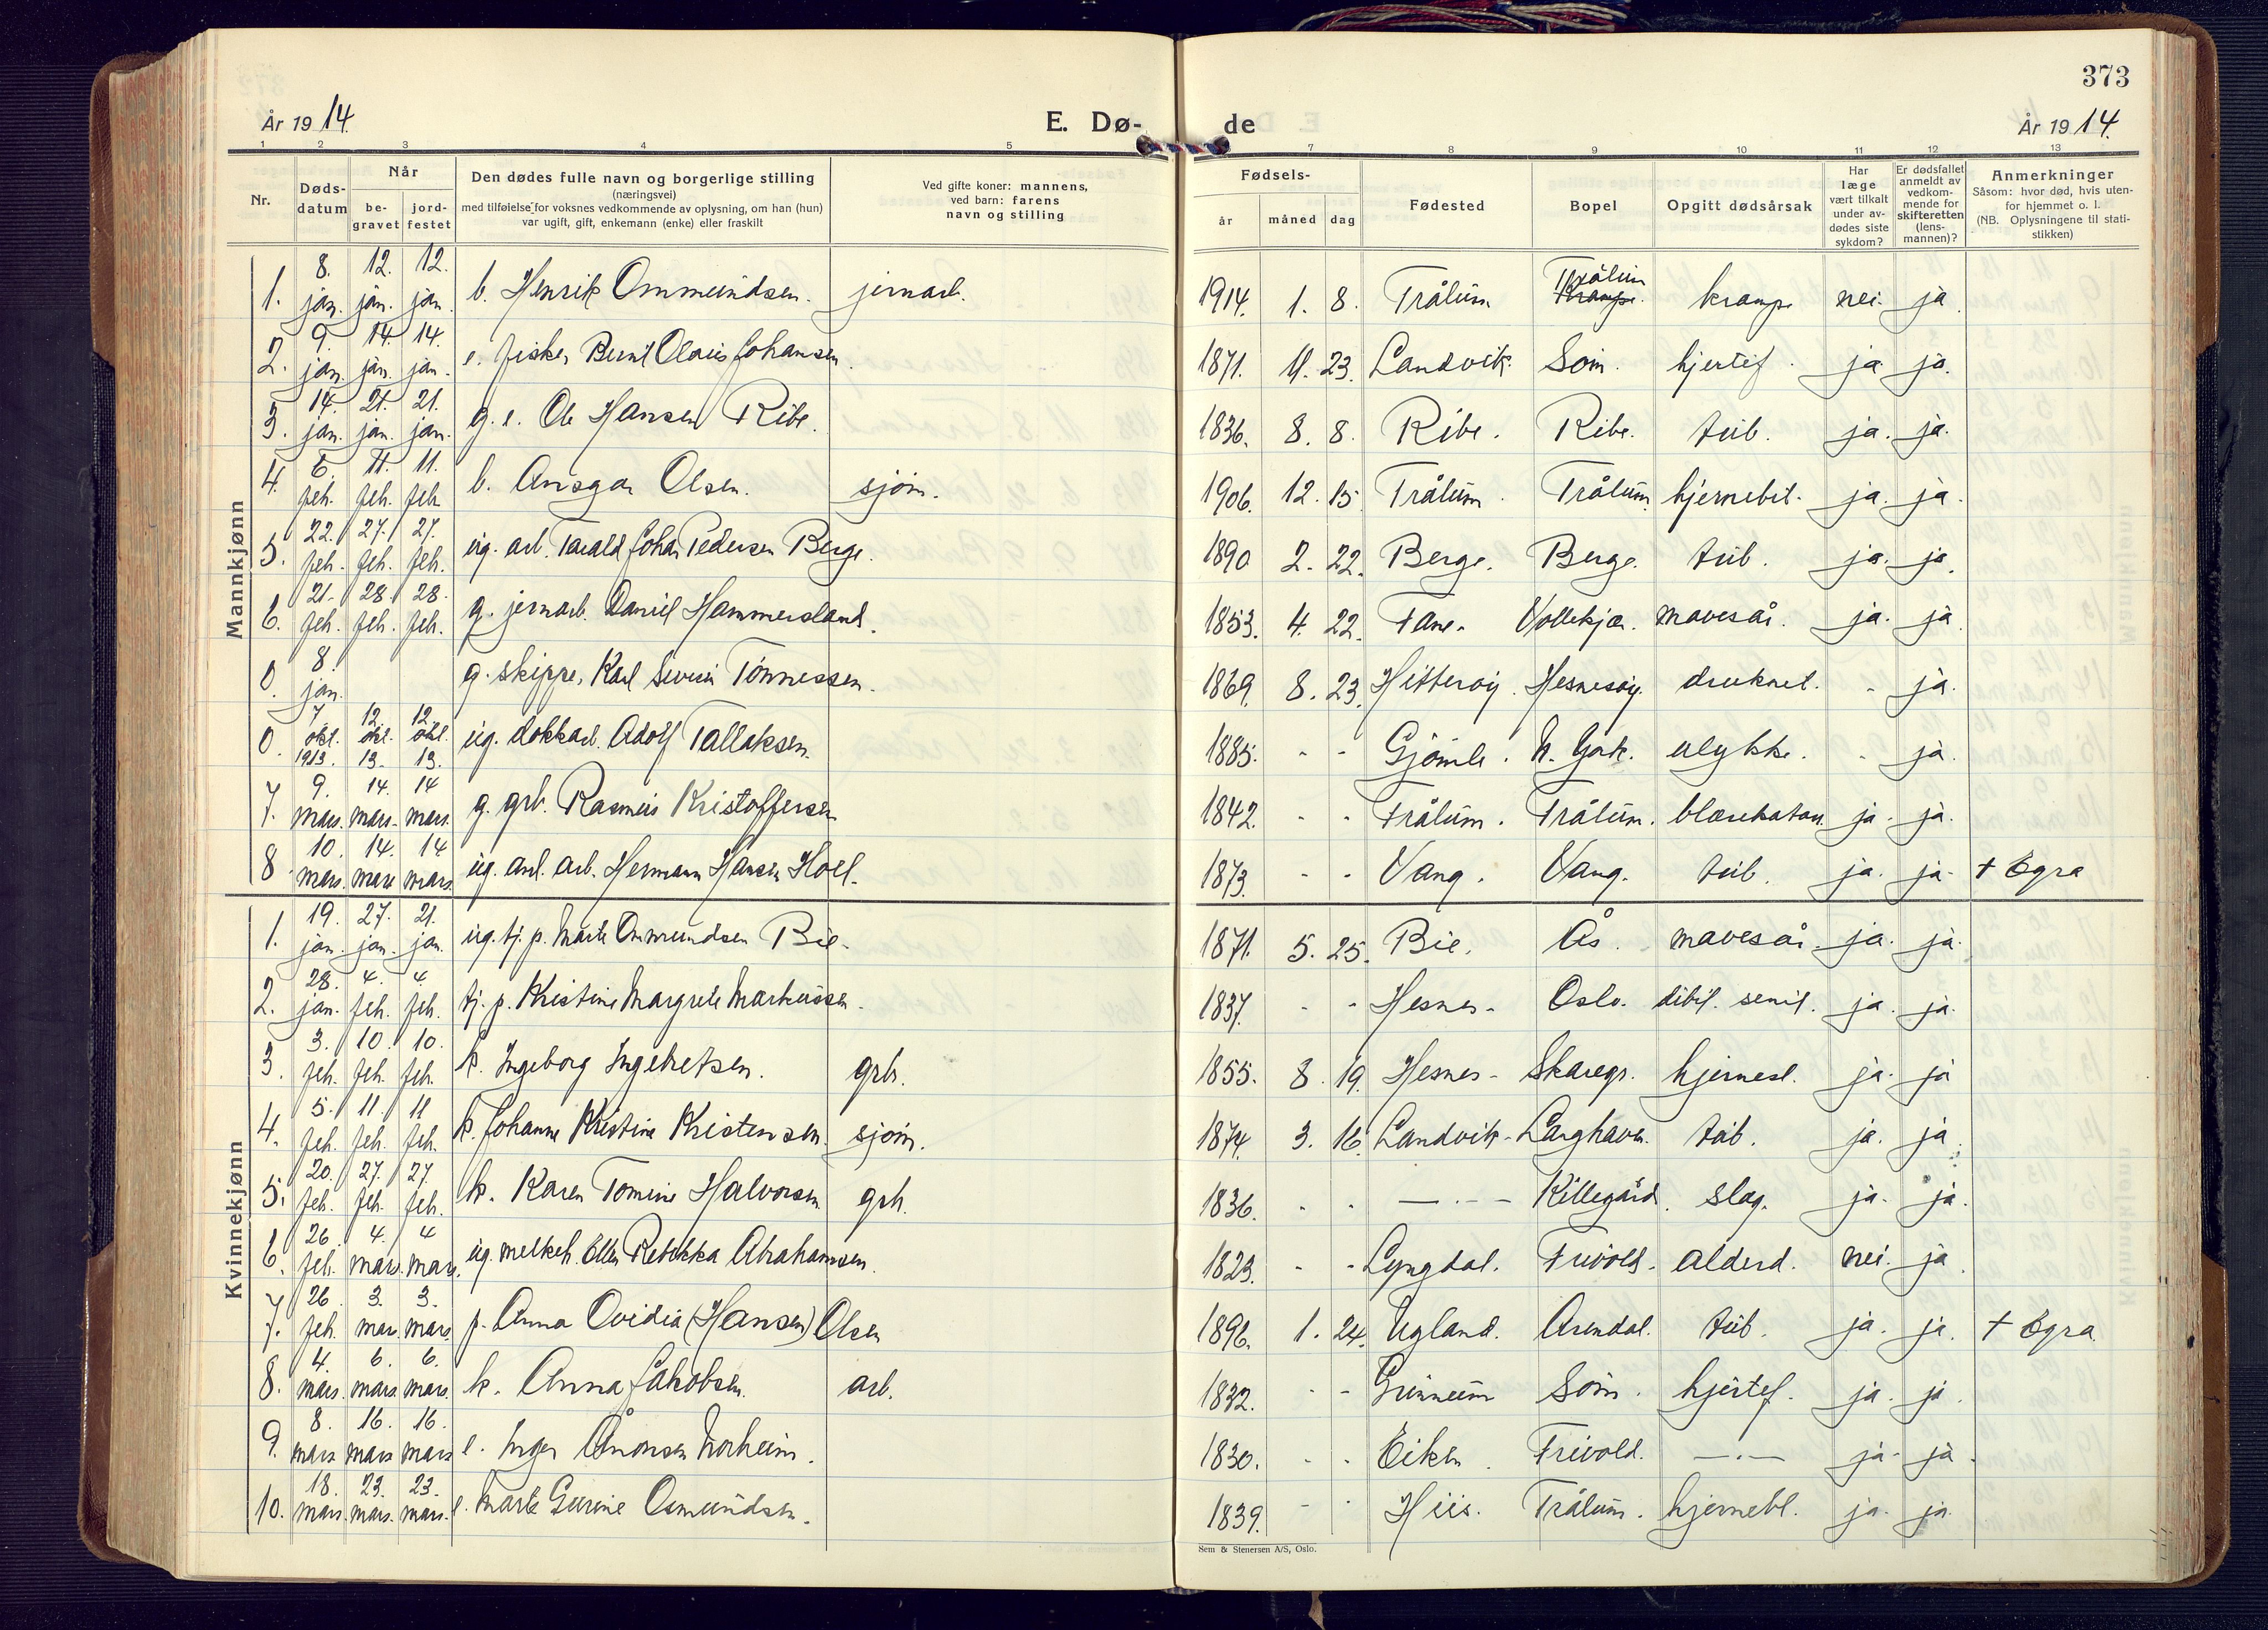 373
År 19 14. E. Dø- de År 19 14.
1 2 3 4 5 7 8 9 10 11 12 13
Nr. Døds-datum Når be-gravet jord-festet Den dødes fulle navn og borgerlige stilling (næringsvei) med tilføielse for voksnes vedkommende av oplysning, om han (hun) var ugift, gift, enkemann (enke) eller fraskilt Ved gifte koner: mannens, ved barn: farens navn og stilling Fødsels- år måned dag Fødested Bopel Opgitt dødsårsak Har læge vært tilkalt under av-dødes siste sykdom? Er dødsfallet anmeldt av vedkom-mende for skifteretten (lens-mannen)? Anmerkninger Såsom: hvor død, hvis uten-for hjemmet o. l. (NB. Oplysningene til stati-stikken)
Mannkjønn
1. 8. jan. 12. jan. 12. jan. b. Henrik Ommundsen. jernarb. 1914. 1. 8. Trålum Trålum krampe nei. ja.
2. 9. jan. 14. jan. 14. jan. e. fisker Bernt Olaus Johansen. 1871. 11. 23. Landvik. Søm. hjertef. ja ja.
3. 14. jan. 21. jan. 21. jan. g. e. Ole Hansen Ribe. 1836. 8. 8. Ribe. Ribe. tub. ja. ja.
4. 6. feb. 11. feb. 11. feb. b. Ansgar Olsen. sjøm. 1906. 12. 15. Trålum. Trålum. hjernebet. ja. ja.
5. 22. feb. 27. feb. 27. feb. ug. arb. Tarald Johan Pedersen Berge. 1890 2. 22. Berge. Berge. tub. ja. ja.
6. 21. feb. 28. feb. 28. feb. g. jernarb. Daniel Hammersland. 1853. 4. 22. Fane. Vollekjær. mavesår. ja. ja.
0. 8. jan. g. skipper Karl Severin Tønnessen. 1869. 8. 23. Hitterøy. Hesnesøy. druknet. - ja.
0. 7. okt. 1913. 12. okt. 13. 12. okt. 13. ug. dokkarb. Adolf Tallaksen. 1885. - - Gjømle. N. York. ulykke. - ja.
7. 9. mars. 14. mars. 14 mars. g. grb. Rasmus Kristoffersen 1842. - - Trålum. Trålum. blærekatarr. ja. ja.
8 10. mars. 14. mars 14. mars. ug. anl. arb. Hermann Hansen Hoel. 1873. - - Vang. Vang. tub. ja. ja. † Egra
Kvinnekjønn
1. 19. jan. 27. jan. 21. jan. ug. tj. p. Marte Ommundsen Bie. 1871. 5. 25. Bie. Ås. mavesår. ja. ja.
2. 28. jan. 4. feb. 4. feb. tj. p. Kristine Margrete Markussen. 1837. - - Hesnes. Oslo. debil. senil. ja. ja.
3. 3. feb. 10. feb. 10. feb. k. Ingeborg Ingebretsen. grbr. 1855. 8. 19. Hesnes. Skaregr. hjernesl. ja. ja
4. 5. feb. 11. feb. 11 feb. k. Johanne Kristine Kristensen. sjøm. 1874. 3. 16. Landvik. tub. ja. ja.
5. 20. feb. 27. feb. 27. feb. k. Karen Tomine Halvorsen grb. 1836. - - —.— Killegård. slag. ja. ja.
6. 26. feb. 4. mars. 4 mars. ug. melkeh. Ellen Rebekka Abrahamsen. 1823. - - Lyngdal. Frivold. alderd. nei. ja.
7. 26. feb. 3. mars. 3. mars. p. Anna Ovidia (Hansen) Olsen 1896. 1. 24. Ugland. Arendal. tub. ja. ja. † Egra.
8. 4. mars. 6. mars. 6. mars. k. Anna Jakobsen. arb. 1832. - - Søm. hjertef. ja. ja.
9. 8. mars 16. mars 16. mars e. Inger Ånonsen Norheim. 1830. - - Eiken. Frivold. —.— ja. ja.
10. 18. mars. 23. mars. 23. mars. e. Marte Gurine Osmundsen. 1839. - - Hiis. Trålum. hjernebl. ja. ja.
Sem & Stenersen A/S, Oslo.